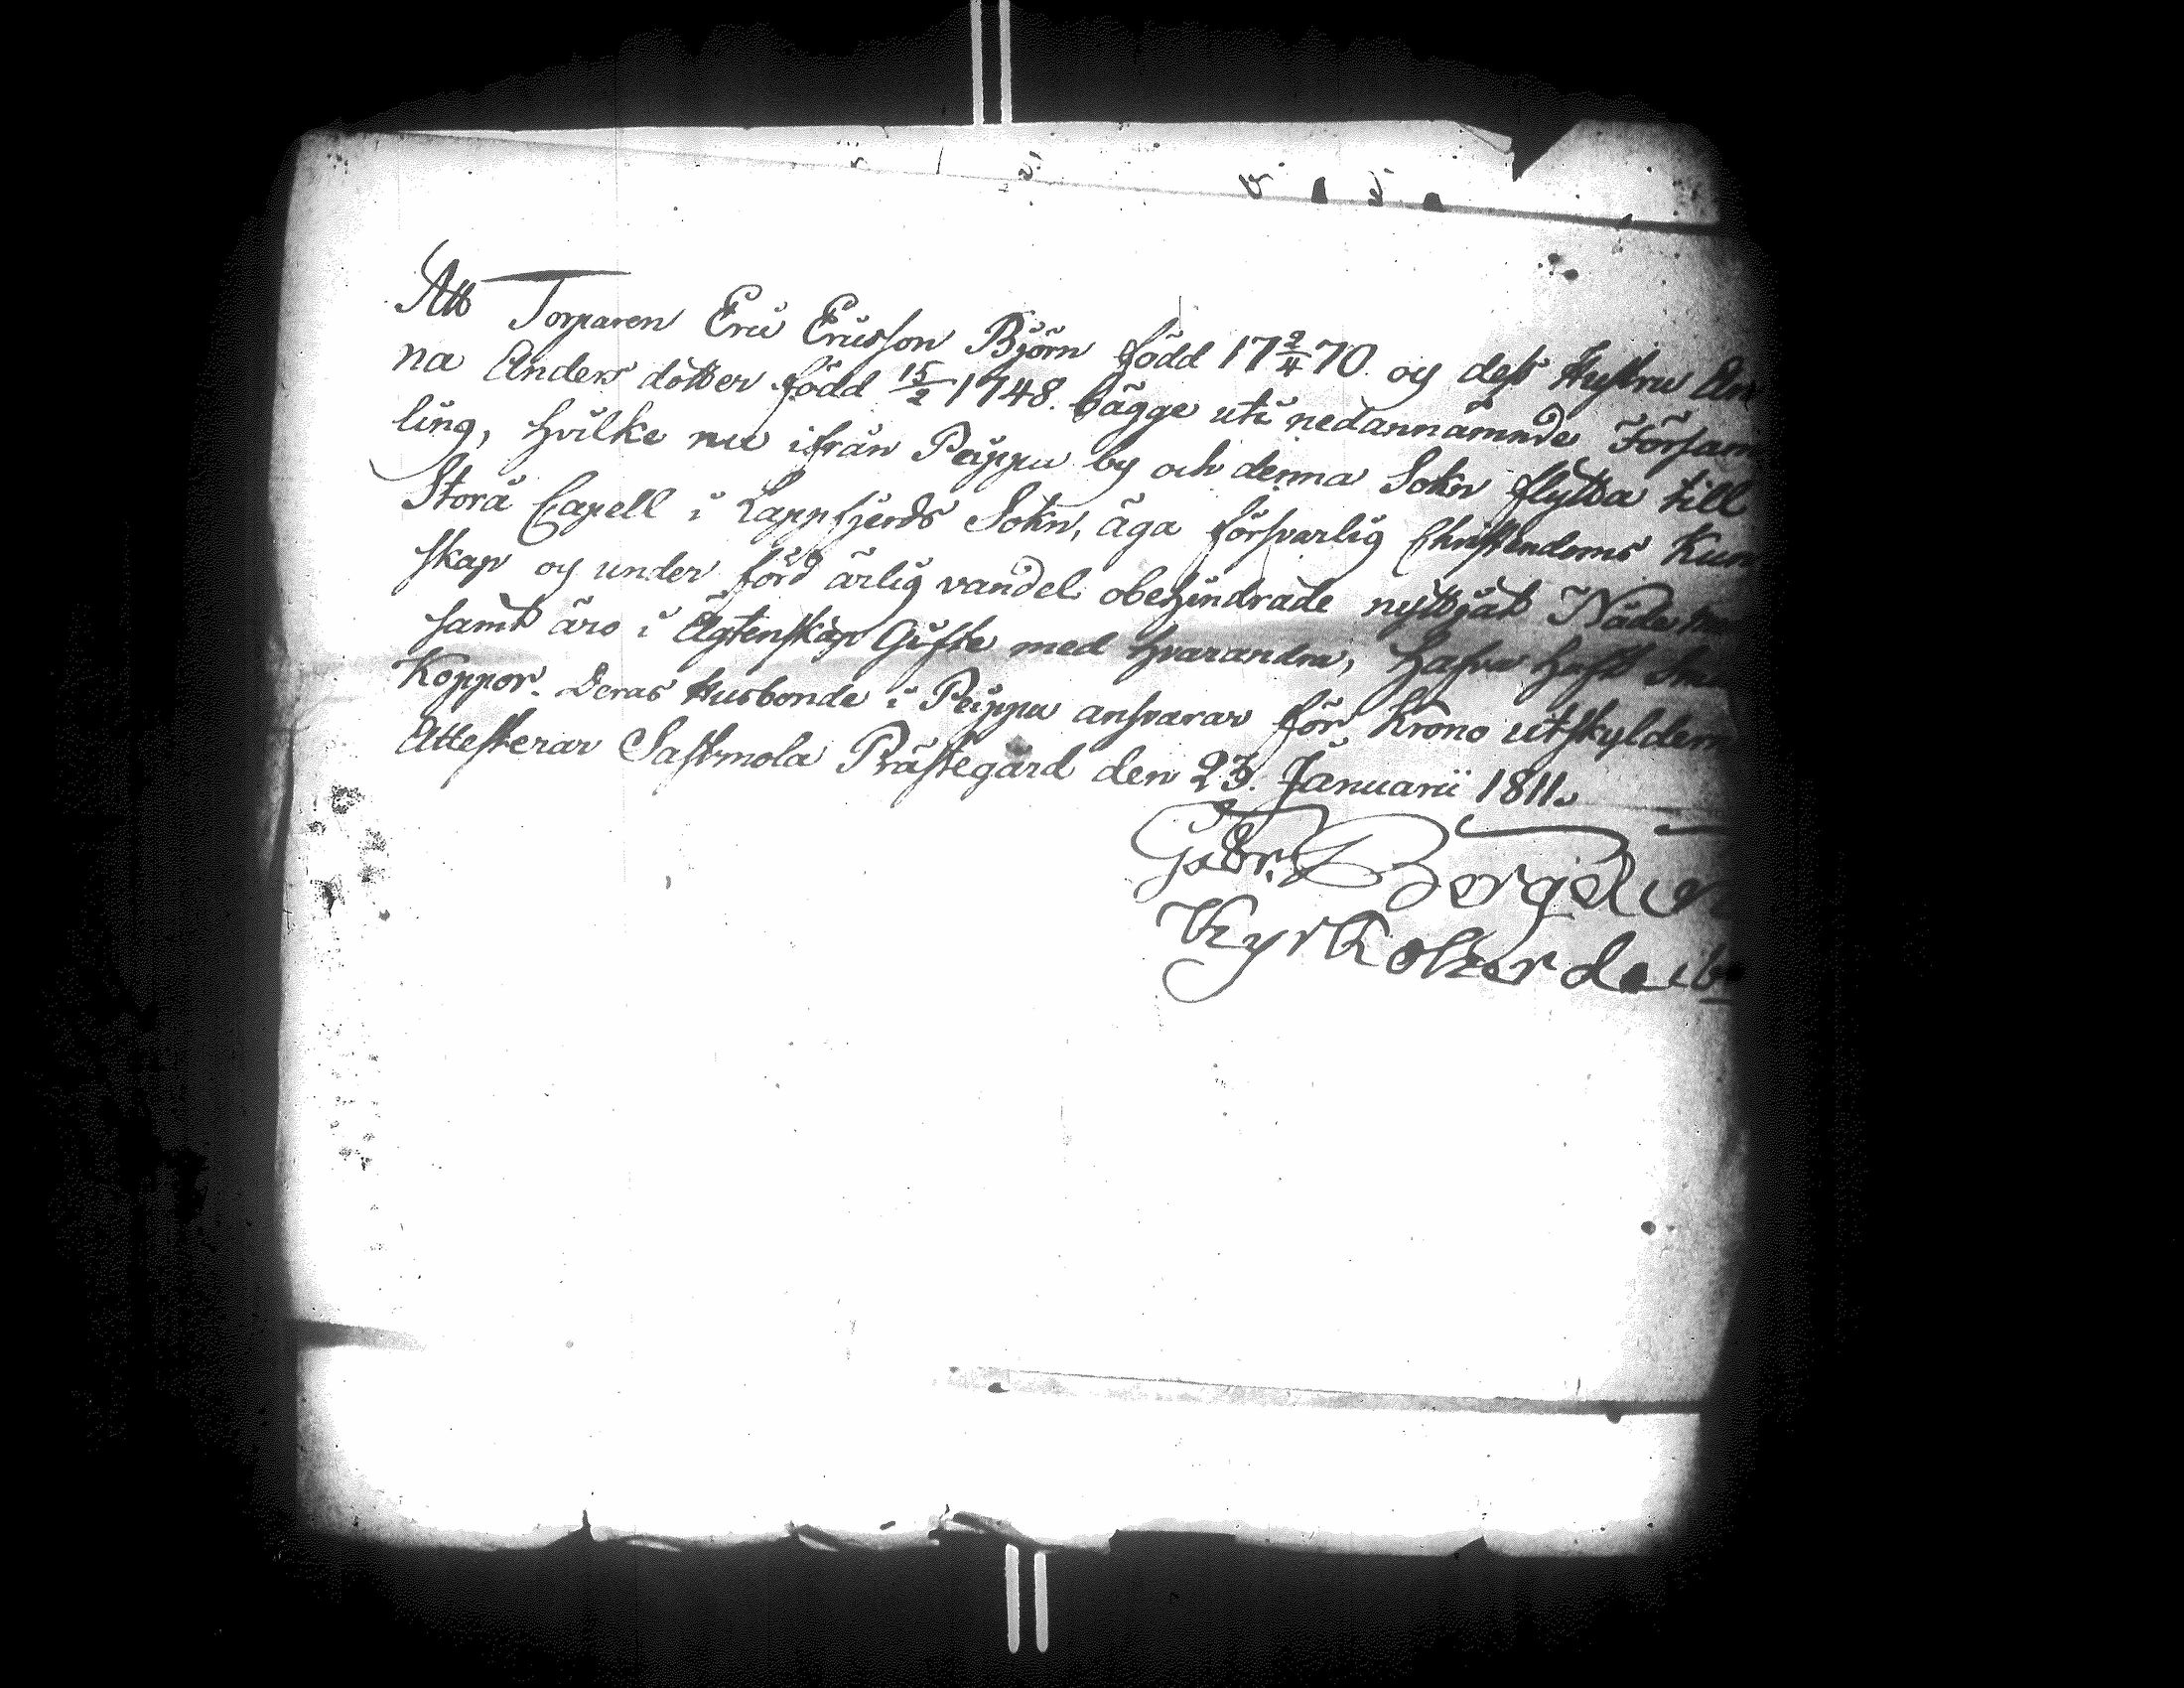 Att Torparen Eric Ericsson Björn född 17 2/4 70. och dess Hustru An
na Anders dotter född 15/2 1748. bägge uti nedannämnde Försam
ling, hvilke nu ifrån Peippu by och denna Sokn flytta till
Storå Capell i Lappfjerds Sokn, äga försvarlig Christendoms Kun
skap och under förd ärlig vandel obehindrade nyttjat Nåde m
samt äro i Ägtenskap Gifte med hvarandra, hafva haft
Koppor. Deras Husbonde i Peippu ansvarar för Krono utskyldern
Attesterar Sastmola Prästegård den 23. Januarii 1811.
Gabr.
Kyrkoherde ib